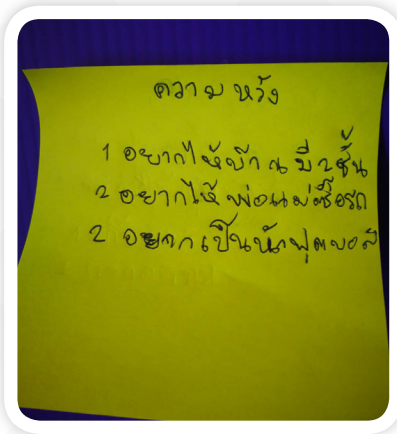 ความหวัง
1 อยากให้บ้านมี ๒ชั้น
2 อยากให้พ่อแม่ซื้อรถ
2 อยากเป็นนักฟุตบอล